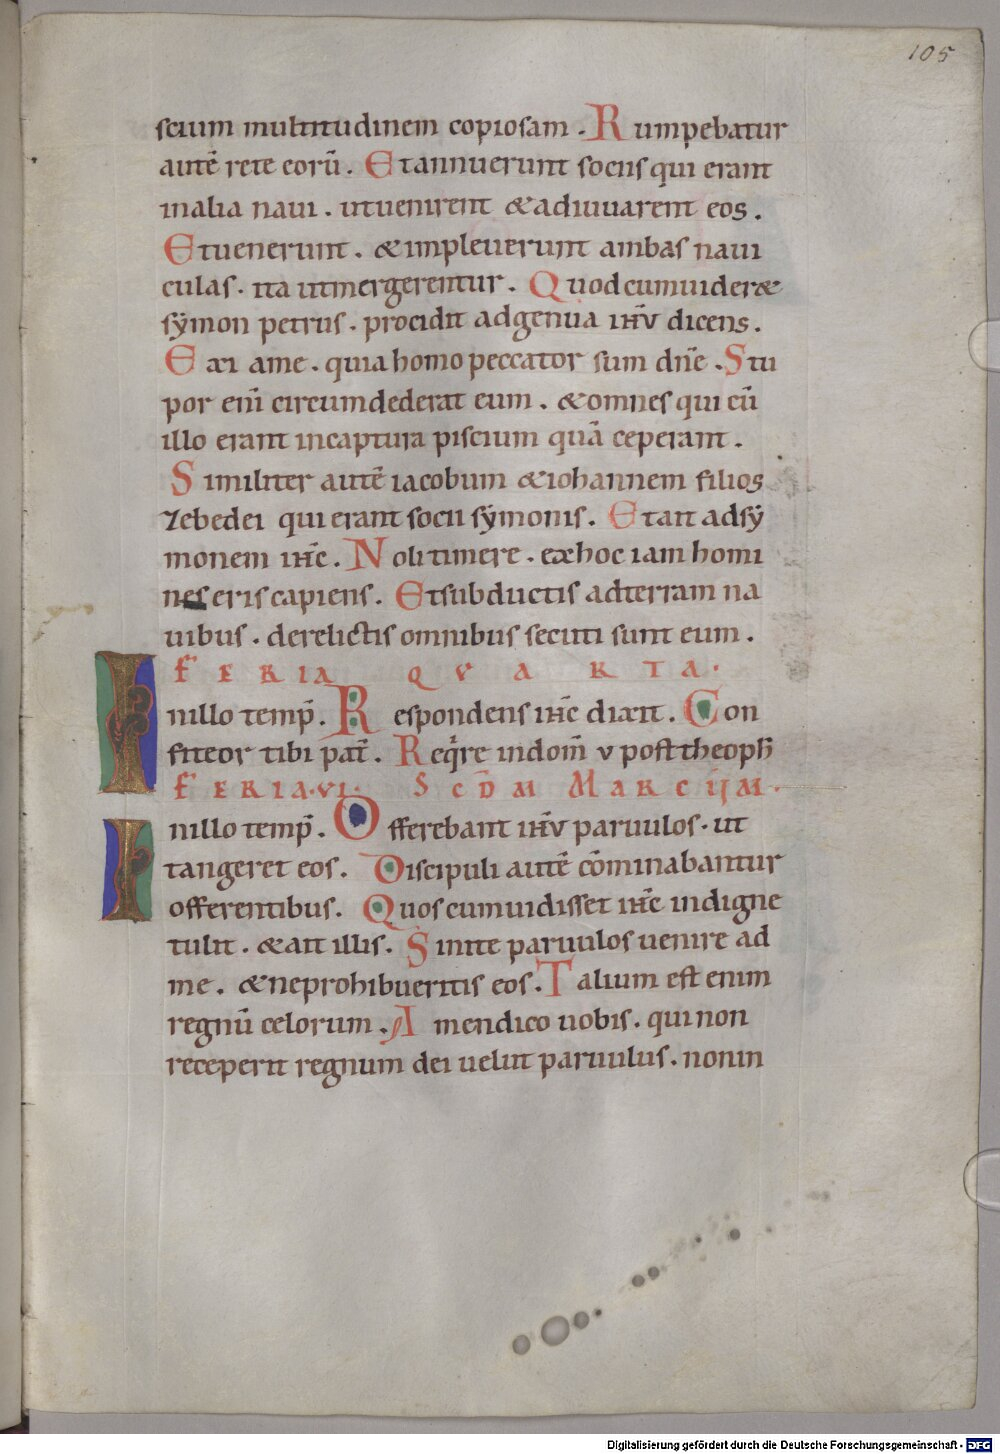 105
scium multitudinem copiosam . Rumpebatur
autē rete eorū . Et annuerunt sociis qui erant
in alia naui . ut uenirent & adiuuarent eos .
Et uenerunt . & impleuerunt ambas naui
culas . ita ut mergerentur . Quod cum uider&
sẏmon petrus . procidit ad genua ihv̄ dicens .
Exi a me . quia homo peccator sum dn̄e . Stu
por eni̅ circumdederat eum . & omnes qui cū
illo erant in captura piscium quā ceperant .
Similiter autē iacobum & iohannem filios
zebedei qui erant socii sẏmonis . Et ait ad sẏ
monem ih̄c . Noli timere . ex hoc iam homi
nes eris capiens . Et subductis ad terram na
uibus . derelictis omnibus secuti sunt eum .
FERIA QVARTA .
In illo temp̄ . Respondens ih̄c dixit . Con
fiteor tibi pat̄ . Reqͥre in dom̄ v post theoph̄
FERIA . VI . SCD̄M MARCUM .
In illo temp̄ . Offerebant ihv̄ paruulos . ut
tangeret eos . Discipuli autē cōminabantur
offerentibus . Quos cum uidisset ih̄c indigne
tulit . & ait illis . Sinite paruulos uenire ad
me . & ne prohibueritis eos . Talium est enim
regnū celorum . Amen dico uobis . qui non
receperit regnum dei uelut paruulus . non in
Digitalisierung gefördert durch die Deutsche Forschungsgemeinschaft - DFG